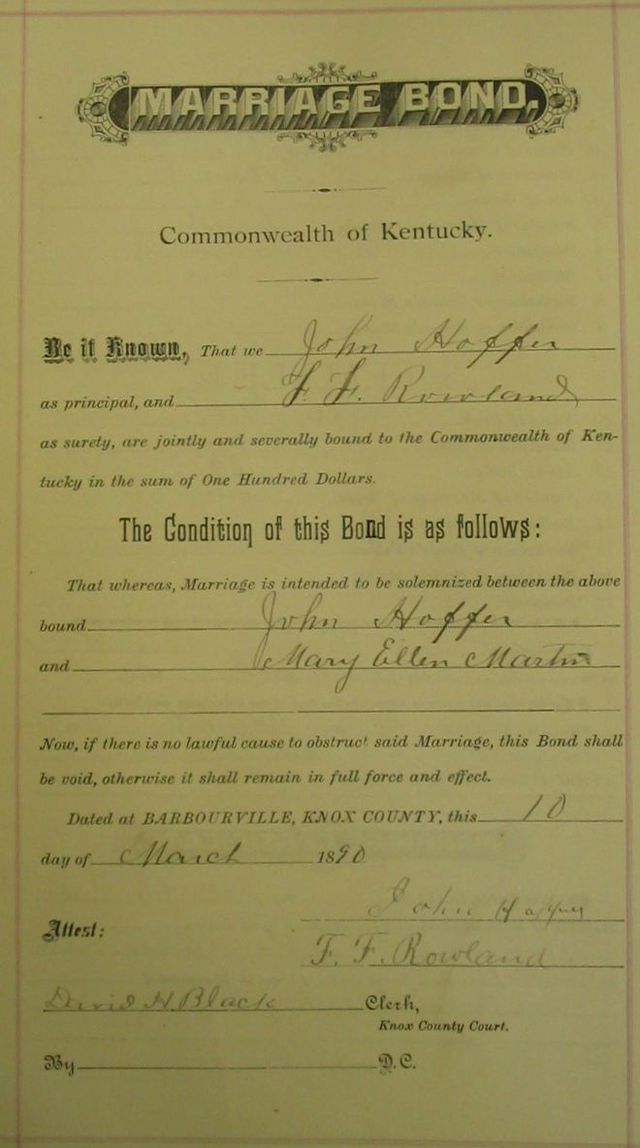 MARRIAGE BOND,
Commonwealth of Kentucky.
Be it Known, That we John Hoffer
as principal, and F. F. Rowland
as surety, are jointly and severally bound to the Commonwealth of Ken-
tucky in the sum of One Hundred Dollars.
The Condition of this Bond is as follows:
That whereas, Marriage is intended to be solemnized between the above
bound John Hoffer
and Mary Ellen Martin
Now, if there is no lawful cause to obstruct said Marriage, this Bond shall
be void, otherwise it shall remain in full force and effect.
Dated at BARBOURVILLE, KNOX COUNTY, this 10
day of March 1890
John
Attest:
F. F. Rowland
David H. Black Clerk,
Knox County Court.
By D.C.